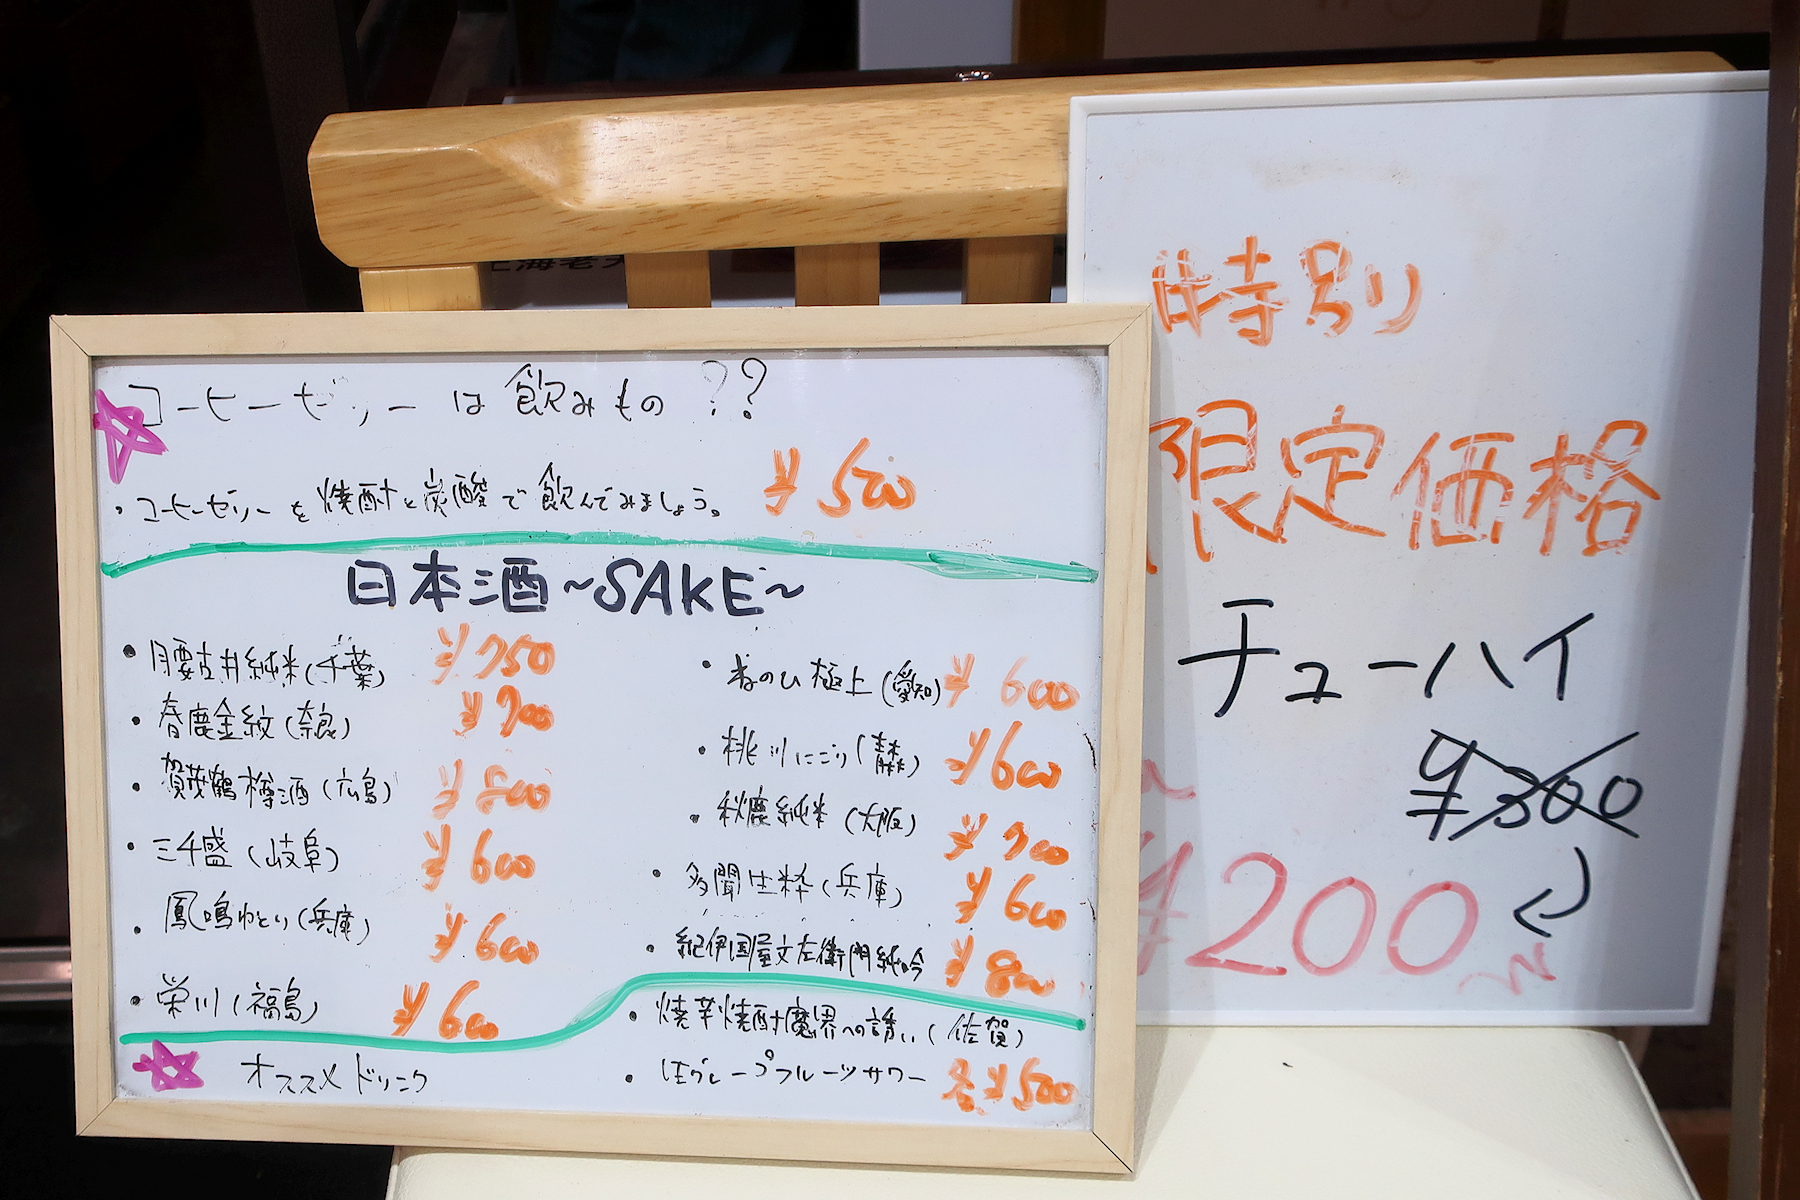 コーヒーゼリーは飲みもの??
・コーヒーゼリーを焼酎と炭酸で飲んでみましょう。 ¥500
日本酒~SAKE~
・腰古井純米(千葉) ¥750
・春鹿金紋(奈良) ¥700
・賀茂鶴樽酒(広島) ¥800
・三千盛(岐阜) ¥600
・鳳鳴わとり(兵庫) ¥600
・栄川(福島) ¥600
・ねのひ極上(愛知) ¥600
・桃川にごり(青森) ¥600
・秋鹿純米(大阪) ¥700
・多聞生粋(兵庫) ¥600
・紀伊国屋文左衛門純吟 ¥800
オススメドリンク
・焼芋焼酎魔界への誘い(佐賀)
・生グレープフルーツサワー 各¥500
特別
限定価格
チューハイ
¥300
¥200